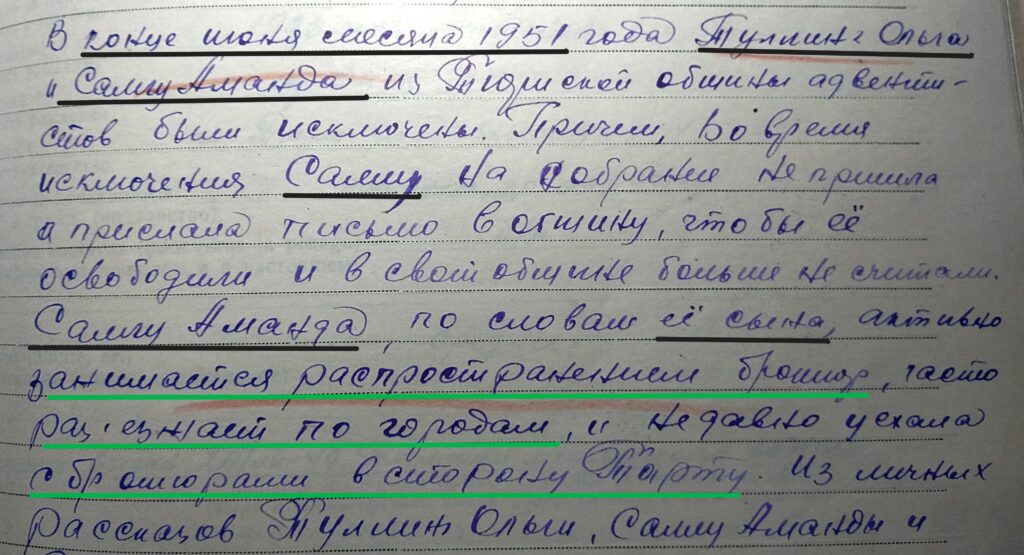 В конце июня месяца 1951 года Туллинг Ольга
и Саллу Аманда из Тюриской общины адвенти-
стов были исключены. Причем, во время
исключения Саллу на собрание не пришла
и прислала письмо в общину, чтобы её
освободили и в свой общине больше не считали.
Саллу Аманда, по словам её сына, активно
занимается распространением брошюр, часто
раз'езжает по городам, и недавно уехала
с брошюрами в сторону Тарту. Из личных
рассказов Туллинг Ольги, Саллу Аманды и